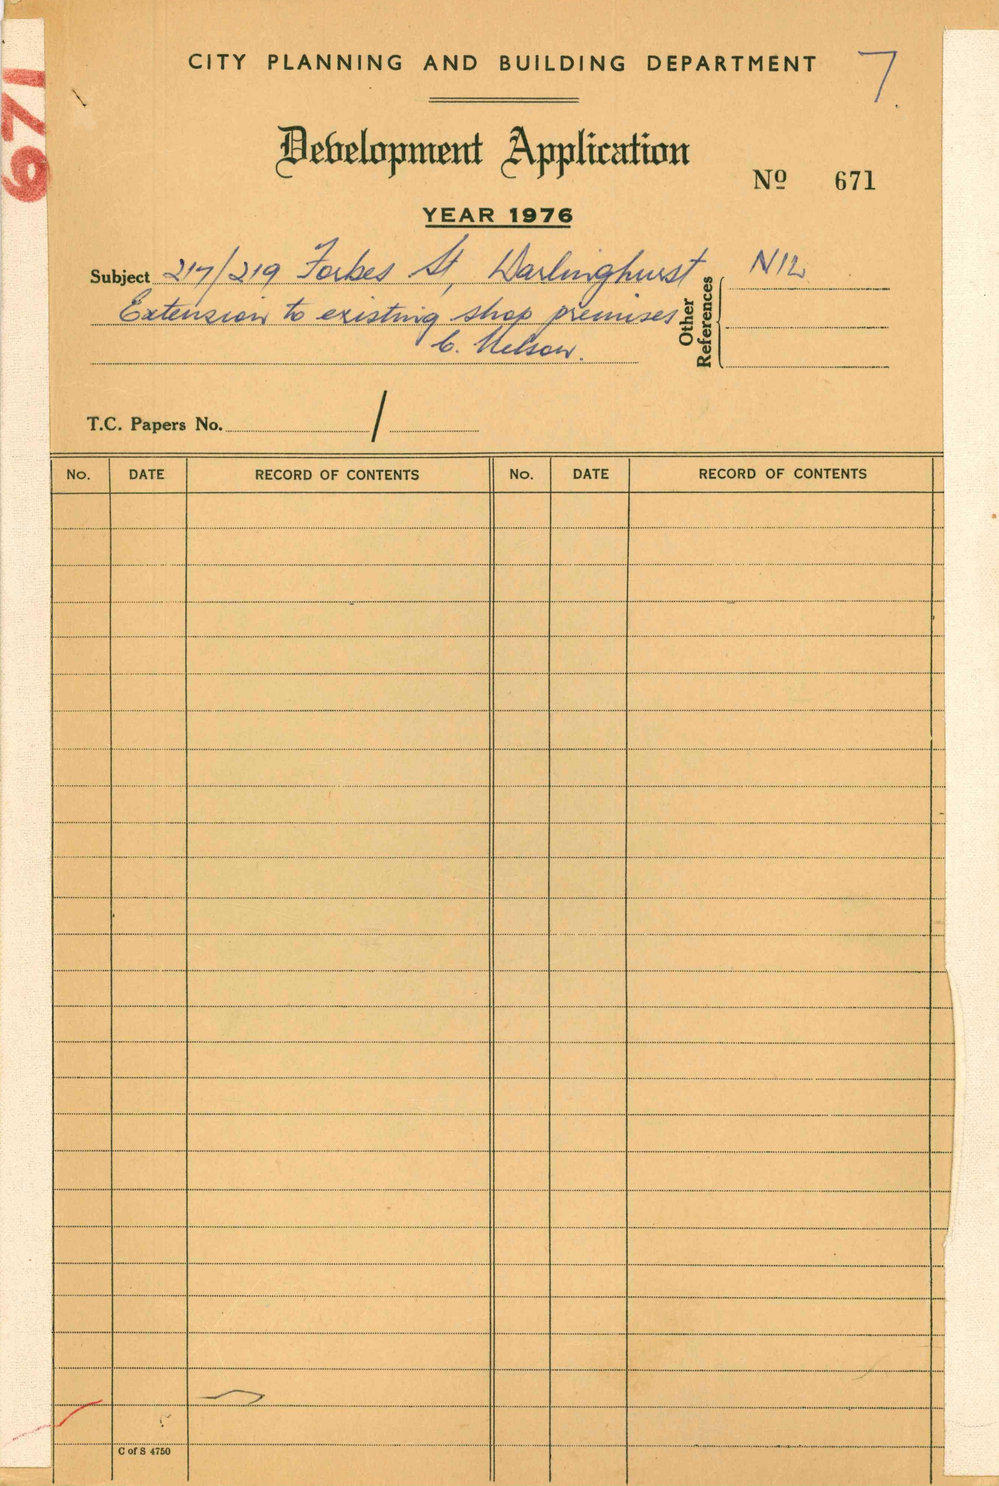 671
CITY PLANNING AND BUILDING DEPARTMENT
7.
Development Application
Nº 671
YEAR 1976
Subject 217/219 Forbes St, Darlinghurst
Extension to existing shop premises
C. Nelson.
Other References
NIL
T.C. Papers No. /
No. DATE RECORD OF CONTENTS No. DATE RECORD OF CONTENTS
C of S 4750